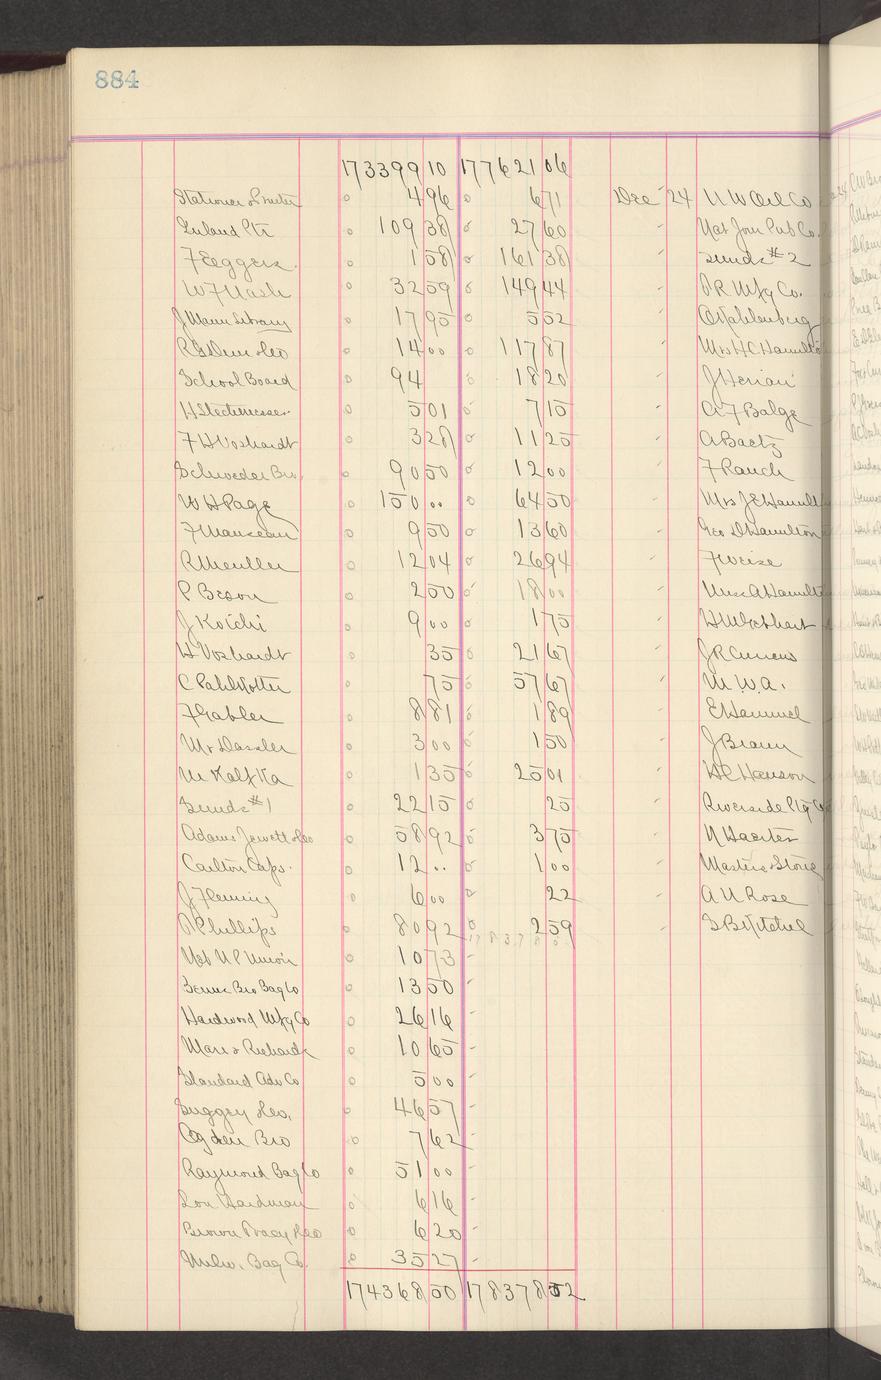 884
173399 10 177621 06
Stationer & Printer 4 96 6 71 Dec 24 N W Oil Co
Inland Ptr 109 38 27 60 Nat Jour Pub Co.
F Eggers. 1 58 161 38 Sunds #2
W F Nash 32 59 149 44 P R Mfg Co.
J Mann Library 17 95 5 52 O Kahlenberg
R G Dun & Co 14 00 117 87 Mrs H C Hamilton
School Board 94 18 20 J Herian
H 5 01 7 15 A F Balge
F H Voshardt 3 28 11 25 A Baetz
Schroeder Bro. 90 50 12 00 F Rauch
W H Page 150 .. 64 50 Mrs J E Hamilt
F Manseau 9 50 13 60 Geo D Hamilton
R Mueller 12 04 26 94 F Weise
P Beson 2 50 18 00 Miss A Hamilt
J Koichi 9 00 1 75 H M Lockhart
H Voshardt 35 21 67 J R Currens
C Pahl 75 57 67 M. W. A.
F Gabler 8 81 1 89 E Hammel
Mr Dassler 3 00 1 50 J Braun
M Kalfka 1 35 25 01 H C Hanson
Sunds #1 22 15 25 Riverside Ptg Co
Adams Jewett & Co 58 92 3 75 N Haerter
Carlton Caps. 12 .. 1 00 Masters & Story
J Fleming 6 00 22 A N Rose
P Phillips 80 92 2 59 S B Kitchel
Nat N P Union 10 73
Bemis Bro Bag Co 13 50
Hardwood Mfg Co 26 16
Mars & Richards 10 65
Standard Adv Co 5 00
Suggey & Co. 46 57
Ogden Bro 7 62
Raymond Bag Co 51 00
Lou Hardman 6 16
Brown Tracy & Co 6 20
Milw. Bag Co. 35 27
174368 50 178378 52